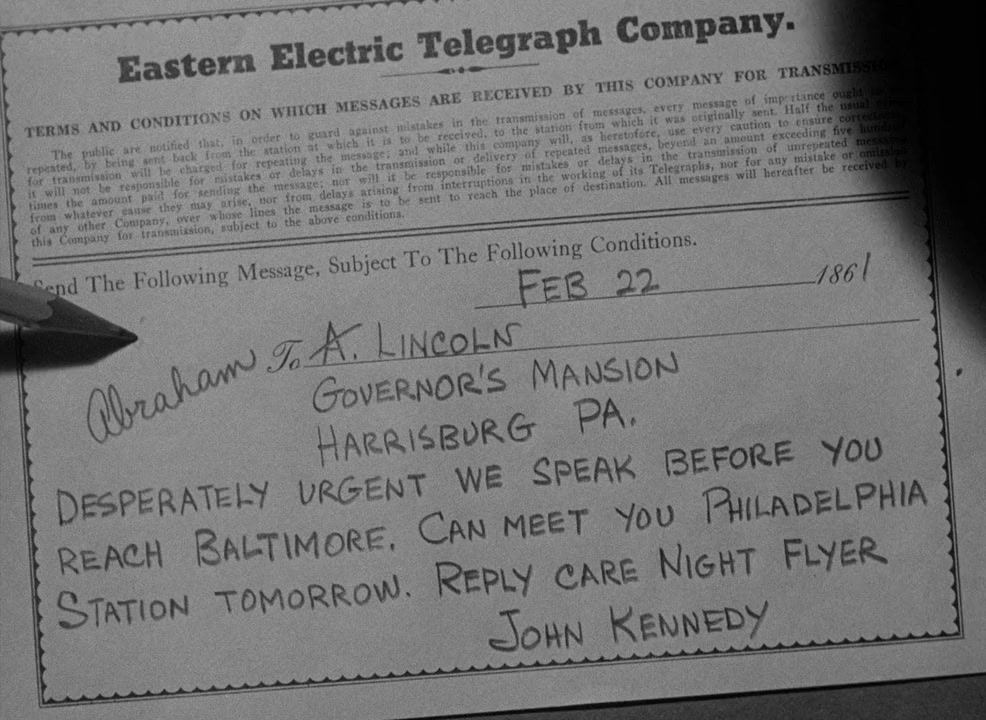 Eastern Electric Telegraph Company.
TERMS AND CONDITIONS ON WHICH MESSAGES ARE RECEIVED BY THIS COMPANY FOR
The public are notified that, in order to guard against mistakes in the transmission of messages, every message of importance ought
repeated, by being sent back from the station at which it is to be received, to the station from which it was originally sent. Half the usual
for transmission will be charged for repeating the message; and while this company will, as heretofore, use every caution to ensure
it will not be responsible for mistakes or delays in the transmission or delivery of repeated messages, beyond an amount exceeding five
times the amount paid for sending the message; nor will it be responsible for mistakes or delays in the transmission of unrepeated
from whatever cause they may arise, nor from delays arising from interruptions in the working of its Telegraphs, nor for any mistake or
of any other Company, over whose lines the message is to be sent to reach the place of destination. All messages will hereafter be received
this Company for transmission, subject to the above conditions.
Send The Following Message, Subject To The Following Conditions.
FEB 22 1861
Abraham To A. LINCOLN
GOVERNOR'S MANSION
HARRISBURG PA.
DESPERATELY URGENT WE SPEAK BEFORE YOU
REACH BALTIMORE. CAN MEET YOU PHILADELPHIA
STATION TOMORROW. REPLY CARE NIGHT FLYER
JOHN KENNEDY